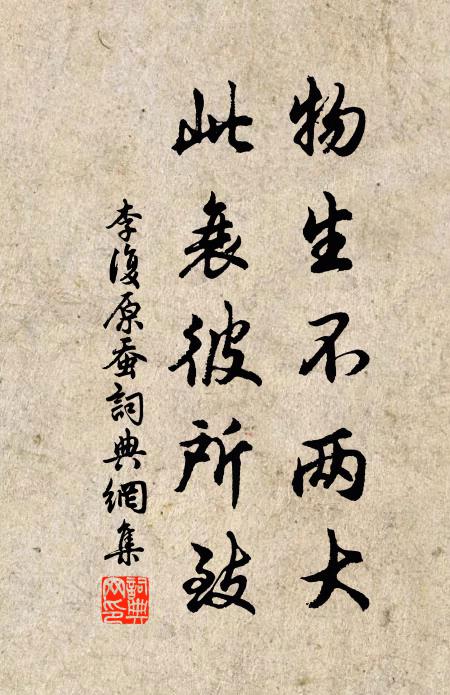 物生不两大
此衰彼所致
李復原蚕詞典網集
詞典網印